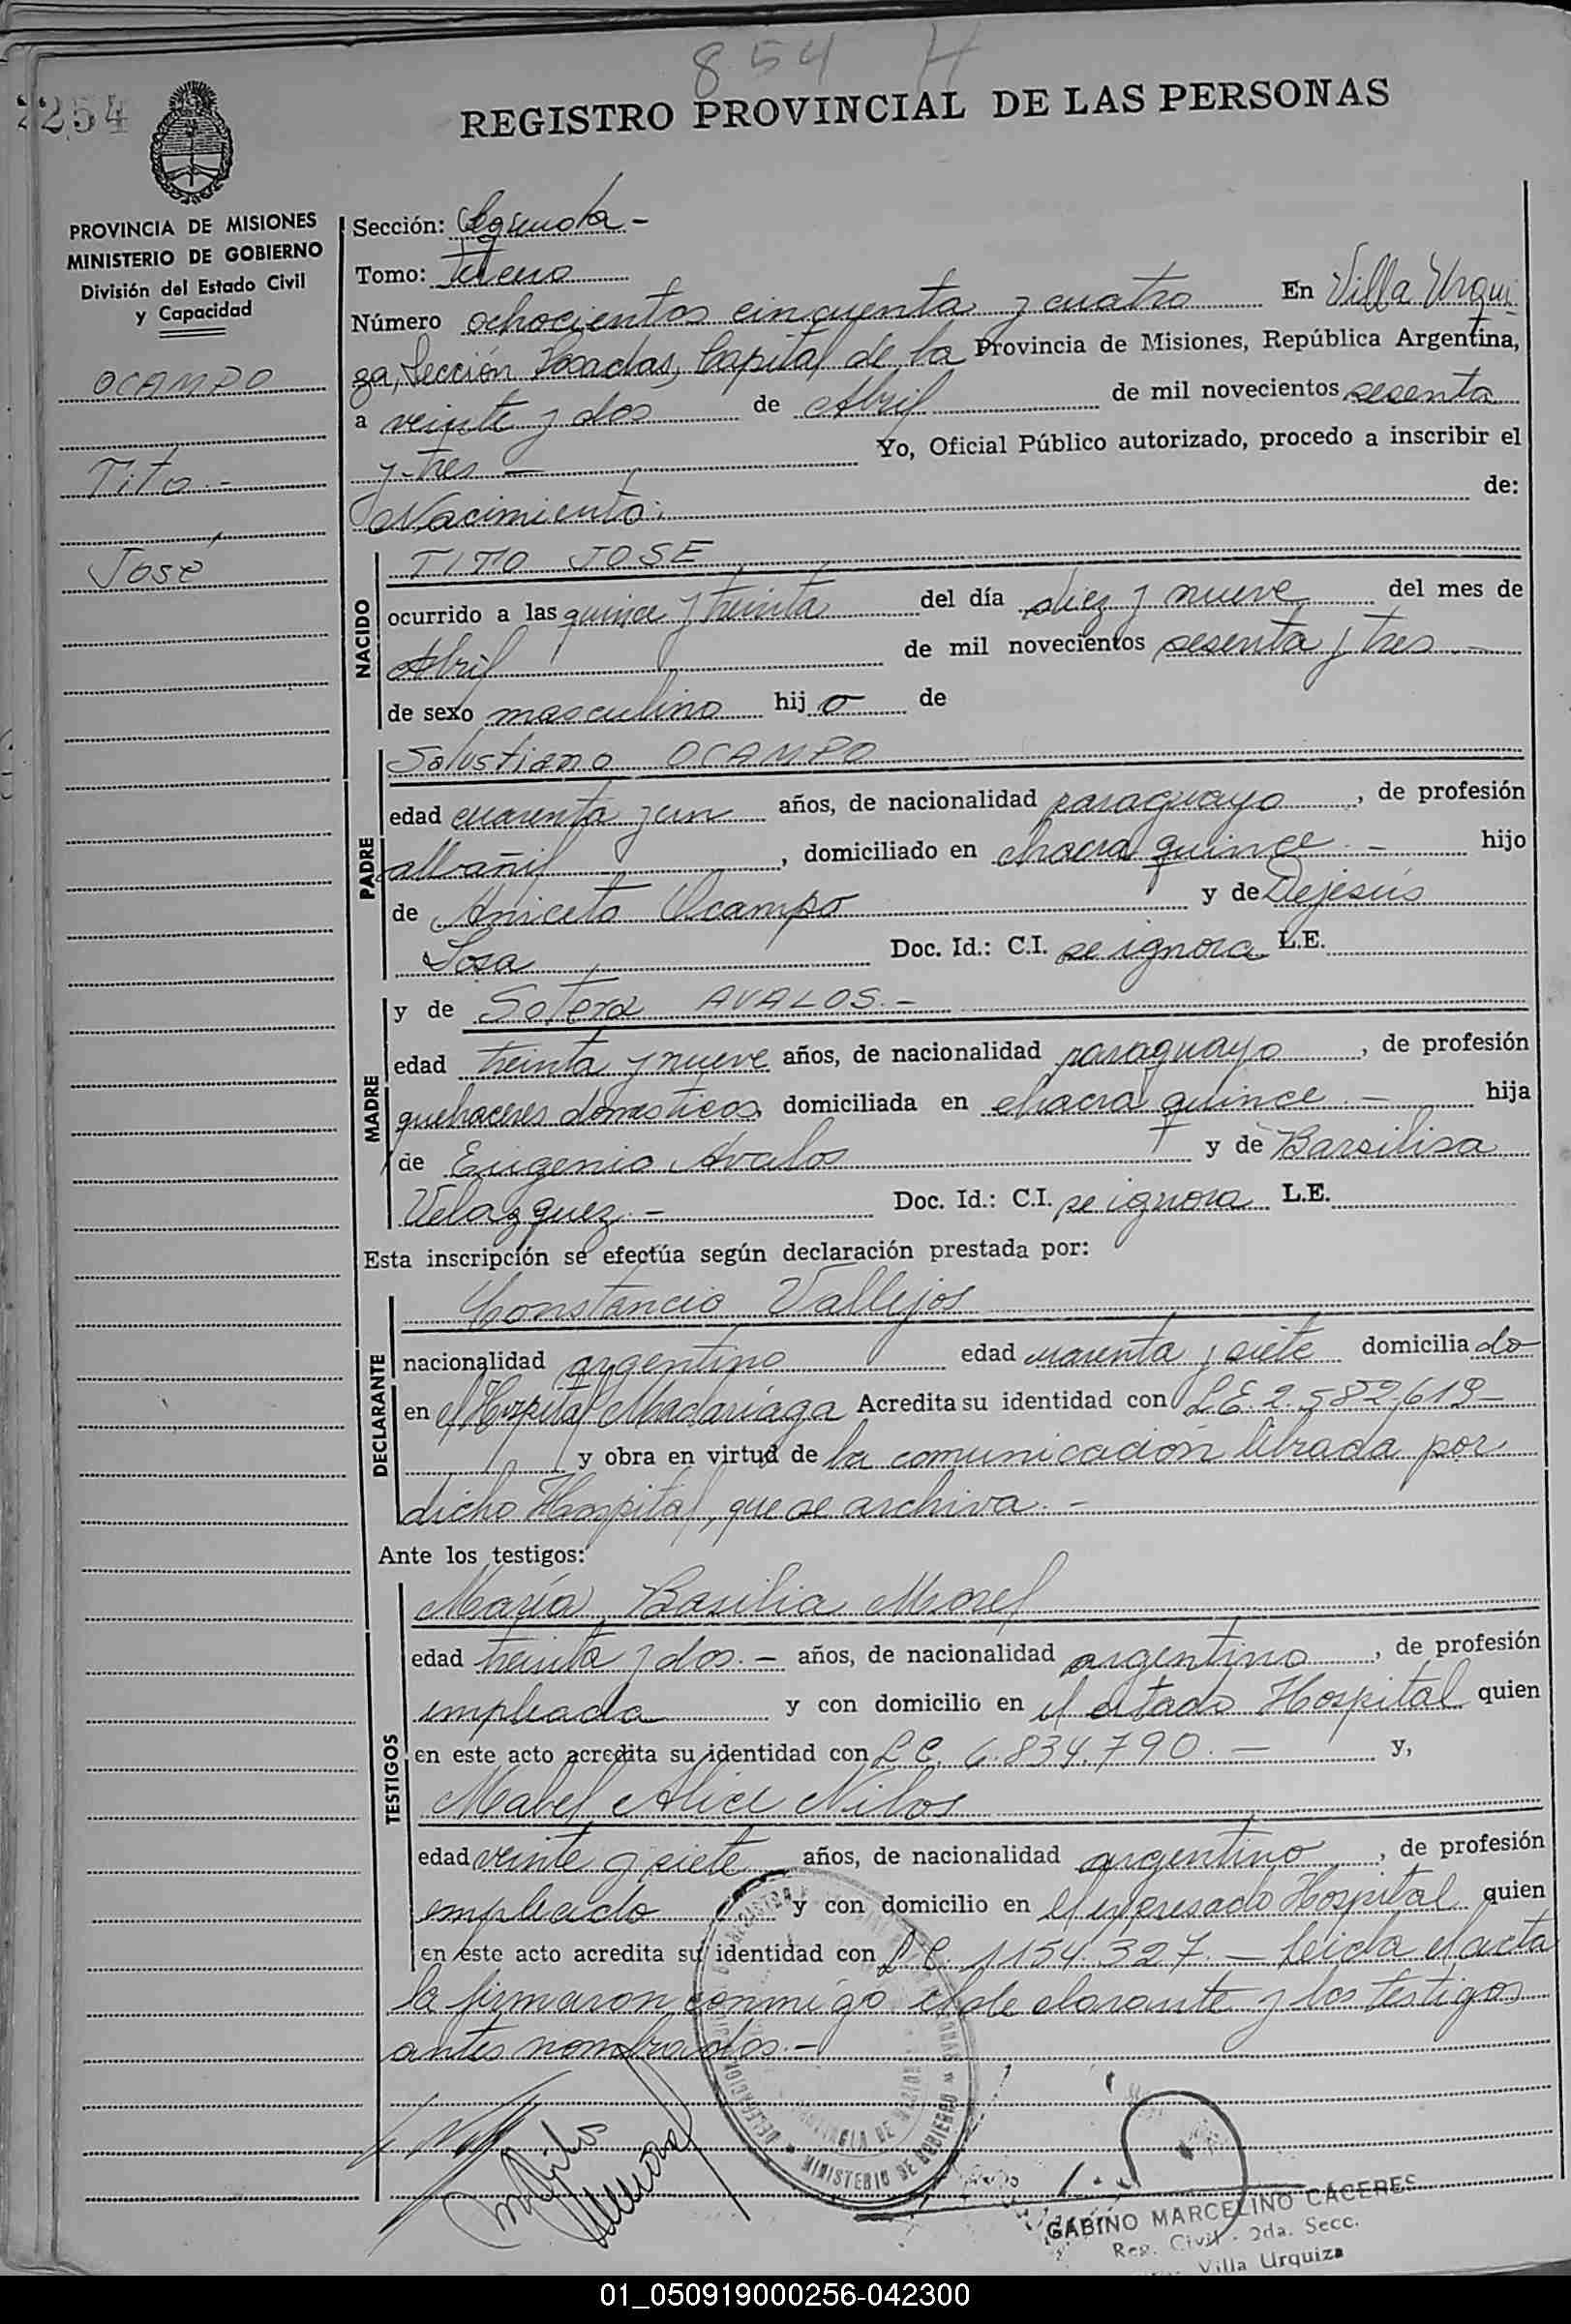 854 H
2254
REGISTRO PROVINCIAL DE LAS PERSONAS
PROVINCIA DE MISIONES
MINISTERIO DE GOBIERNO
División del Estado Civil
y Capacidad
OCAMPO
Tito.-
José
Sección: Segunda -
Tomo:
Número ochocientos cincuenta y cuatro En Villa Urqui-
za, Sección Posadas, Capital de la Provincia de Misiones, República Argentina,
a veinte y dos de Abril de mil novecientos sesenta
y tres - Yo, Oficial Público autorizado, procedo a inscribir el
Nacimiento: de:
NACIDO
TITO JOSE
ocurrido a las quince y treinta del día diez y nueve del mes de
Abril de mil novecientos sesenta y tres.-
de sexo masculino hijo de
PADRE
Salustiano OCAMPO
edad cuarenta y un años, de nacionalidad paraguayo, de profesión
albañil, domiciliado en chacra quince.- hijo
de Aniceto Ocampo y de Dejesús
Sosa Doc. Id.: C.I. se ignora L.E.
MADRE
y de Sotera AVALOS.-
edad treinta y nueve años, de nacionalidad paraguayo, de profesión
quehaceres domesticos, domiciliada en chacra quince.- hija
de Eugenio Avalos y de Barsilisa
Velazquez.- Doc. Id.: C.I. se ignora L.E.
Esta inscripción se efectúa según declaración prestada por:
DECLARANTE
Constancio Vallejos
nacionalidad argentino edad cuarenta y siete domiciliado
en el Hospital Madariaga Acredita su identidad con L.E. 2.582.619-
y obra en virtud de la comunicación librada por
dicho Hospital, que se archiva.-
Ante los testigos:
TESTIGOS
María Basilia Morel
edad treinta y dos.- años, de nacionalidad argentino, de profesión
empleada y con domicilio en el citado Hospital quien
en este acto acredita su identidad con L.C. 6.834.790.- y,
Mabel Alice Nilos
edad veinte y siete años, de nacionalidad argentino, de profesión
empleado y con domicilio en el expresado Hospital quien
en este acto acredita su identidad con L.C. 1154.327.- Leida el acta
la firmaron conmigo el declarante y los testigos
antes nombrados.-
MINISTERIO DE GOBIERNO
GABINO MARCELINO CACERES
Reg. Civil - 2da. Secc.
Villa Urquiza
01_050919000256-042300